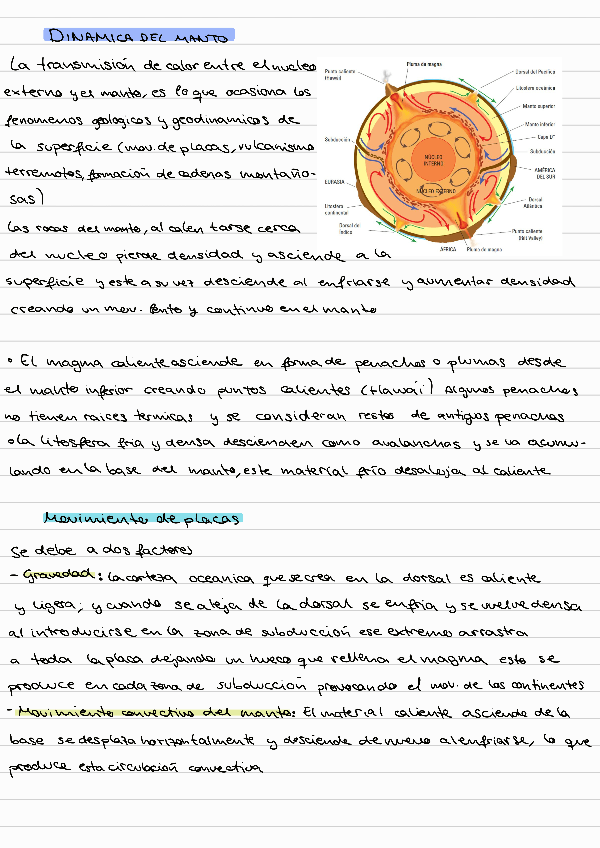 DINAMICA DEL MANTO
La transmisión de calor entre el nucleo
externo y el manto, es lo que ocasiona los
fenomenos geologicos y geodinamicos de
la superficie (mov. de placas, vulcanismo
terremotos, formación de cadenas montaño-
sas)
Las rocas del manto, al calentarse cerca
del nucleo pierde densidad y asciende a la
superficie y este a su vez desciende al enfriarse y aumentar densidad
creando un mov. lento y continuo en el manto
Pluma de magna
Punto caliente
(Hawai)
Dorsal del Pacífico
Litosfera oceánica
Manto superior
Manto inferior
Capa D"
Subducción
Subducción
AMÉRICA
DEL SUR
EURASIA
NÚCLEO
INTERNO
NÚCLEO EXTERNO
Litosfera
continental
Dorsal
Atlántica
Dorsal de
Índico
Punto caliente
(Rift Valley)
ÁFRICA
Pluma de magna
• El magma caliente asciende en forma de penachos o plumas desde
el manto inferior creando puntos calientes (Hawaii) Algunos penachos
no tienen raices termicas y se consideran restos de antigos penachos
• La litosfera fria y densa descienden como avalanchas y se va acumu-
lando en la base del manto, este material frío desaloja al caliente
Movimiento de placas
Se debe a dos factores
- Gravedad: La corteza oceanica que se crea en la dorsal es caliente
y ligera, y cuando se aleja de la dorsal se enfria y se vuelve densa
al introducirse en la zona de subducción ese extremo arrastra
a toda la placa dejando un hueco que rellena el magma esto se
produce en cada zona de subducción provocando el mov. de los continentes
- Movimiento convectivo del manto: El material caliente asciende de la
base se desplaza horizontalmente y desciende de nuevo al enfriarse, lo que
produce esta circulación convectiva